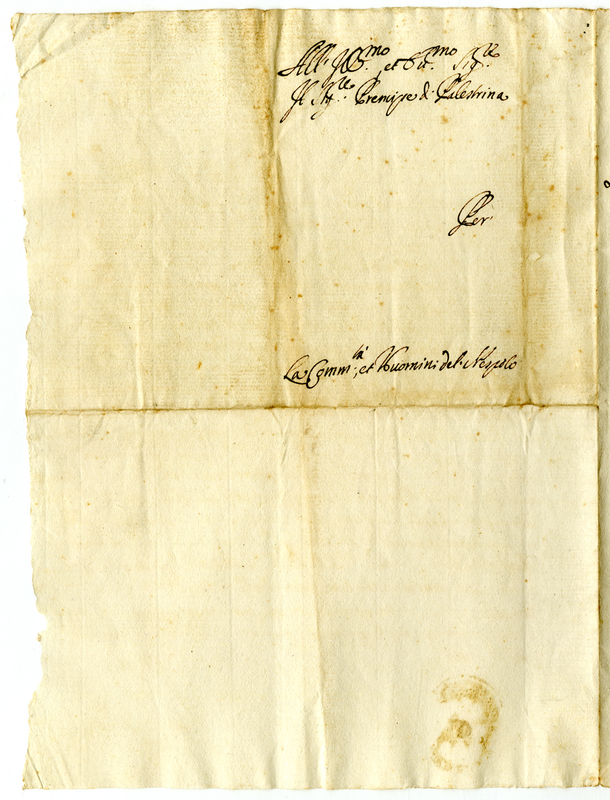 All' Ill.mo et Ecc.mo Sig.re
Il Sig.re Prencipe di Palestrina
Per
La Comm.tà, et Huomini del Nespolo